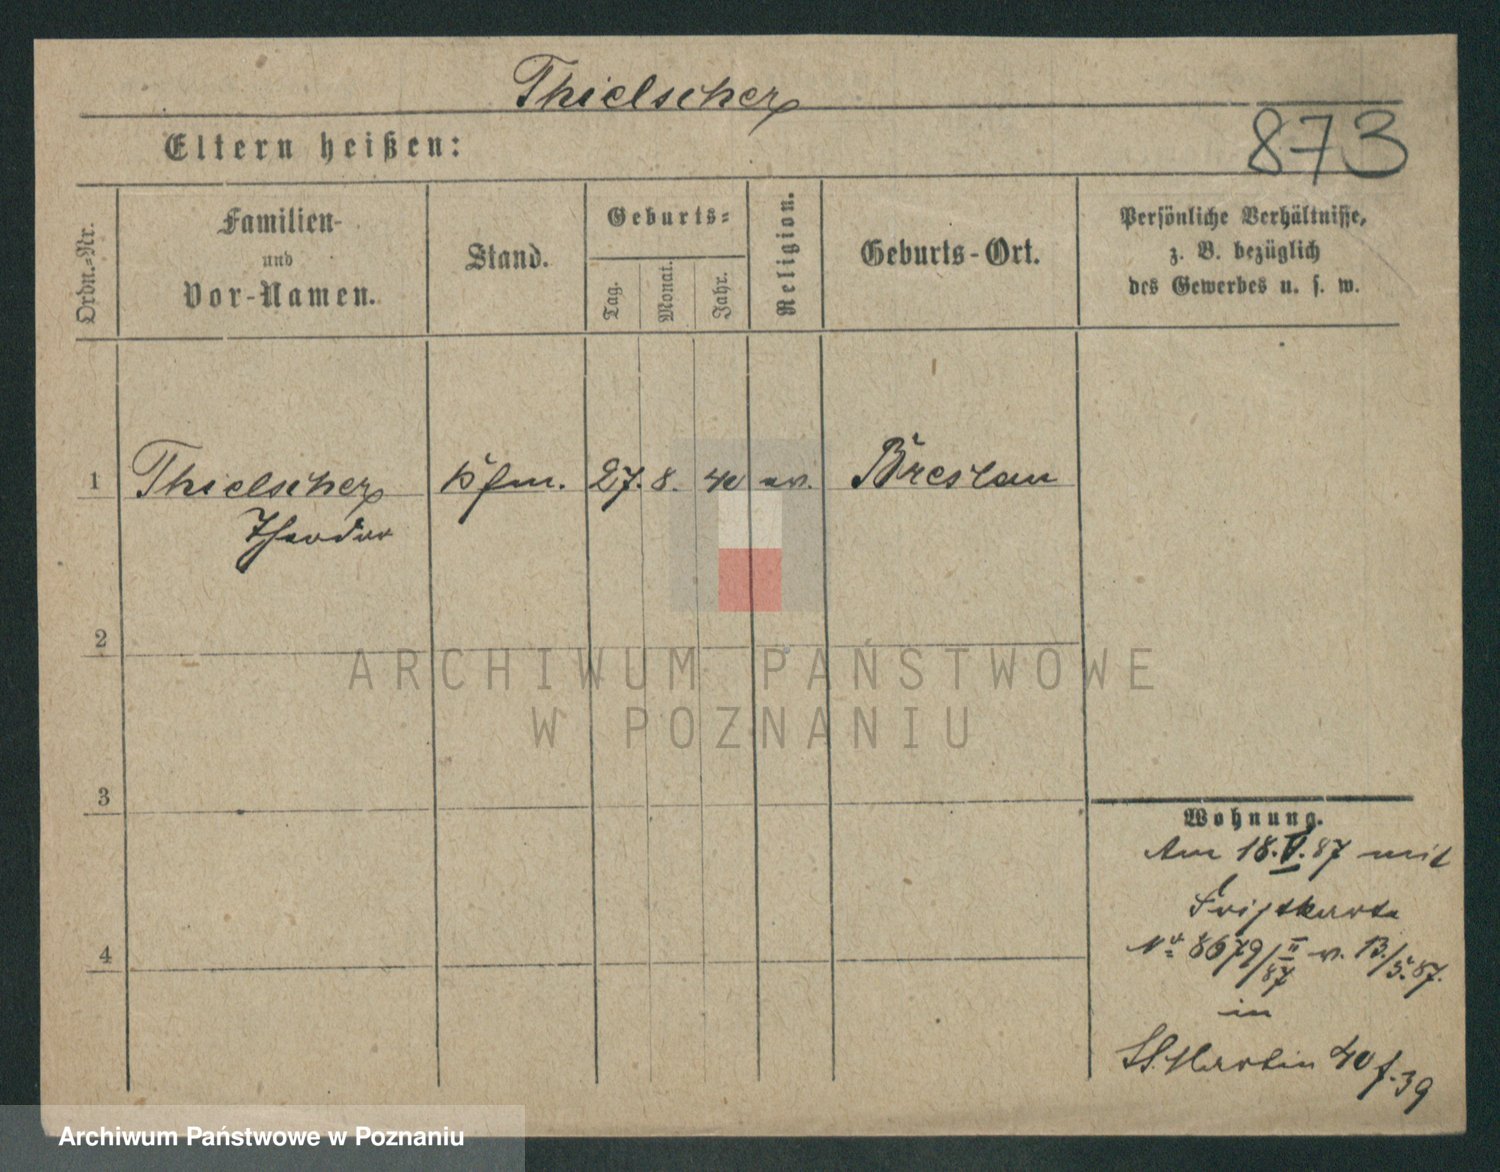 Thielscher
873
Eltern heißen:
Ordn.-Nr.
Familien-
und
Vor-Namen.
Stand.
Geburts-
Tag.
Monat.
Jahr.
Religion.
Geburts-Ort.
Persönliche Verhältnisse,
z. B. bezüglich
des Gewerbes u. s. w.
1 Thielscher Kfm. 27. 8. 40 ev. Breslau
Theodor
2
3
4
Wohnung.
Am 18.V.87 mit
Fristkarte
No 8679/II 87 v. 13./5.87.
in
St. Martin 40 f. 39
ARCHIWUM PAŃSTWOWE
W POZNANIU
Archiwum Państwowe w Poznaniu